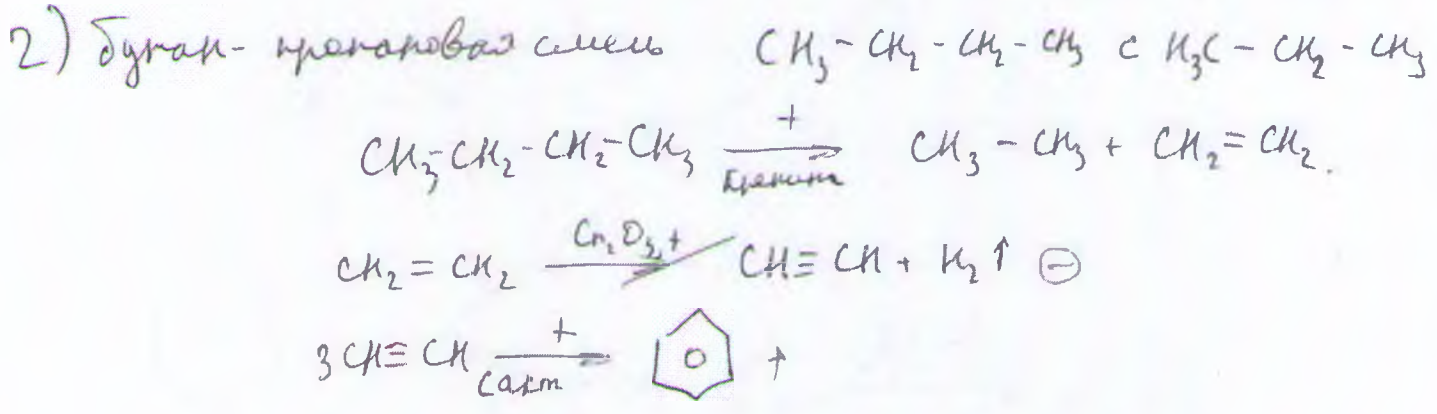 2) бутан-пропановая смесь CH₃-CH₂-CH₂-CH₃ с H₃C-CH₂-CH₃
CH₃-CH₂-CH₂-CH₃ t крекинг → CH₃-CH₃ + CH₂=CH₂.
CH₂=CH₂ Cr₂O₃, t → CH≡CH + H₂↑ ⊖
3CH≡CH t Cакт → +